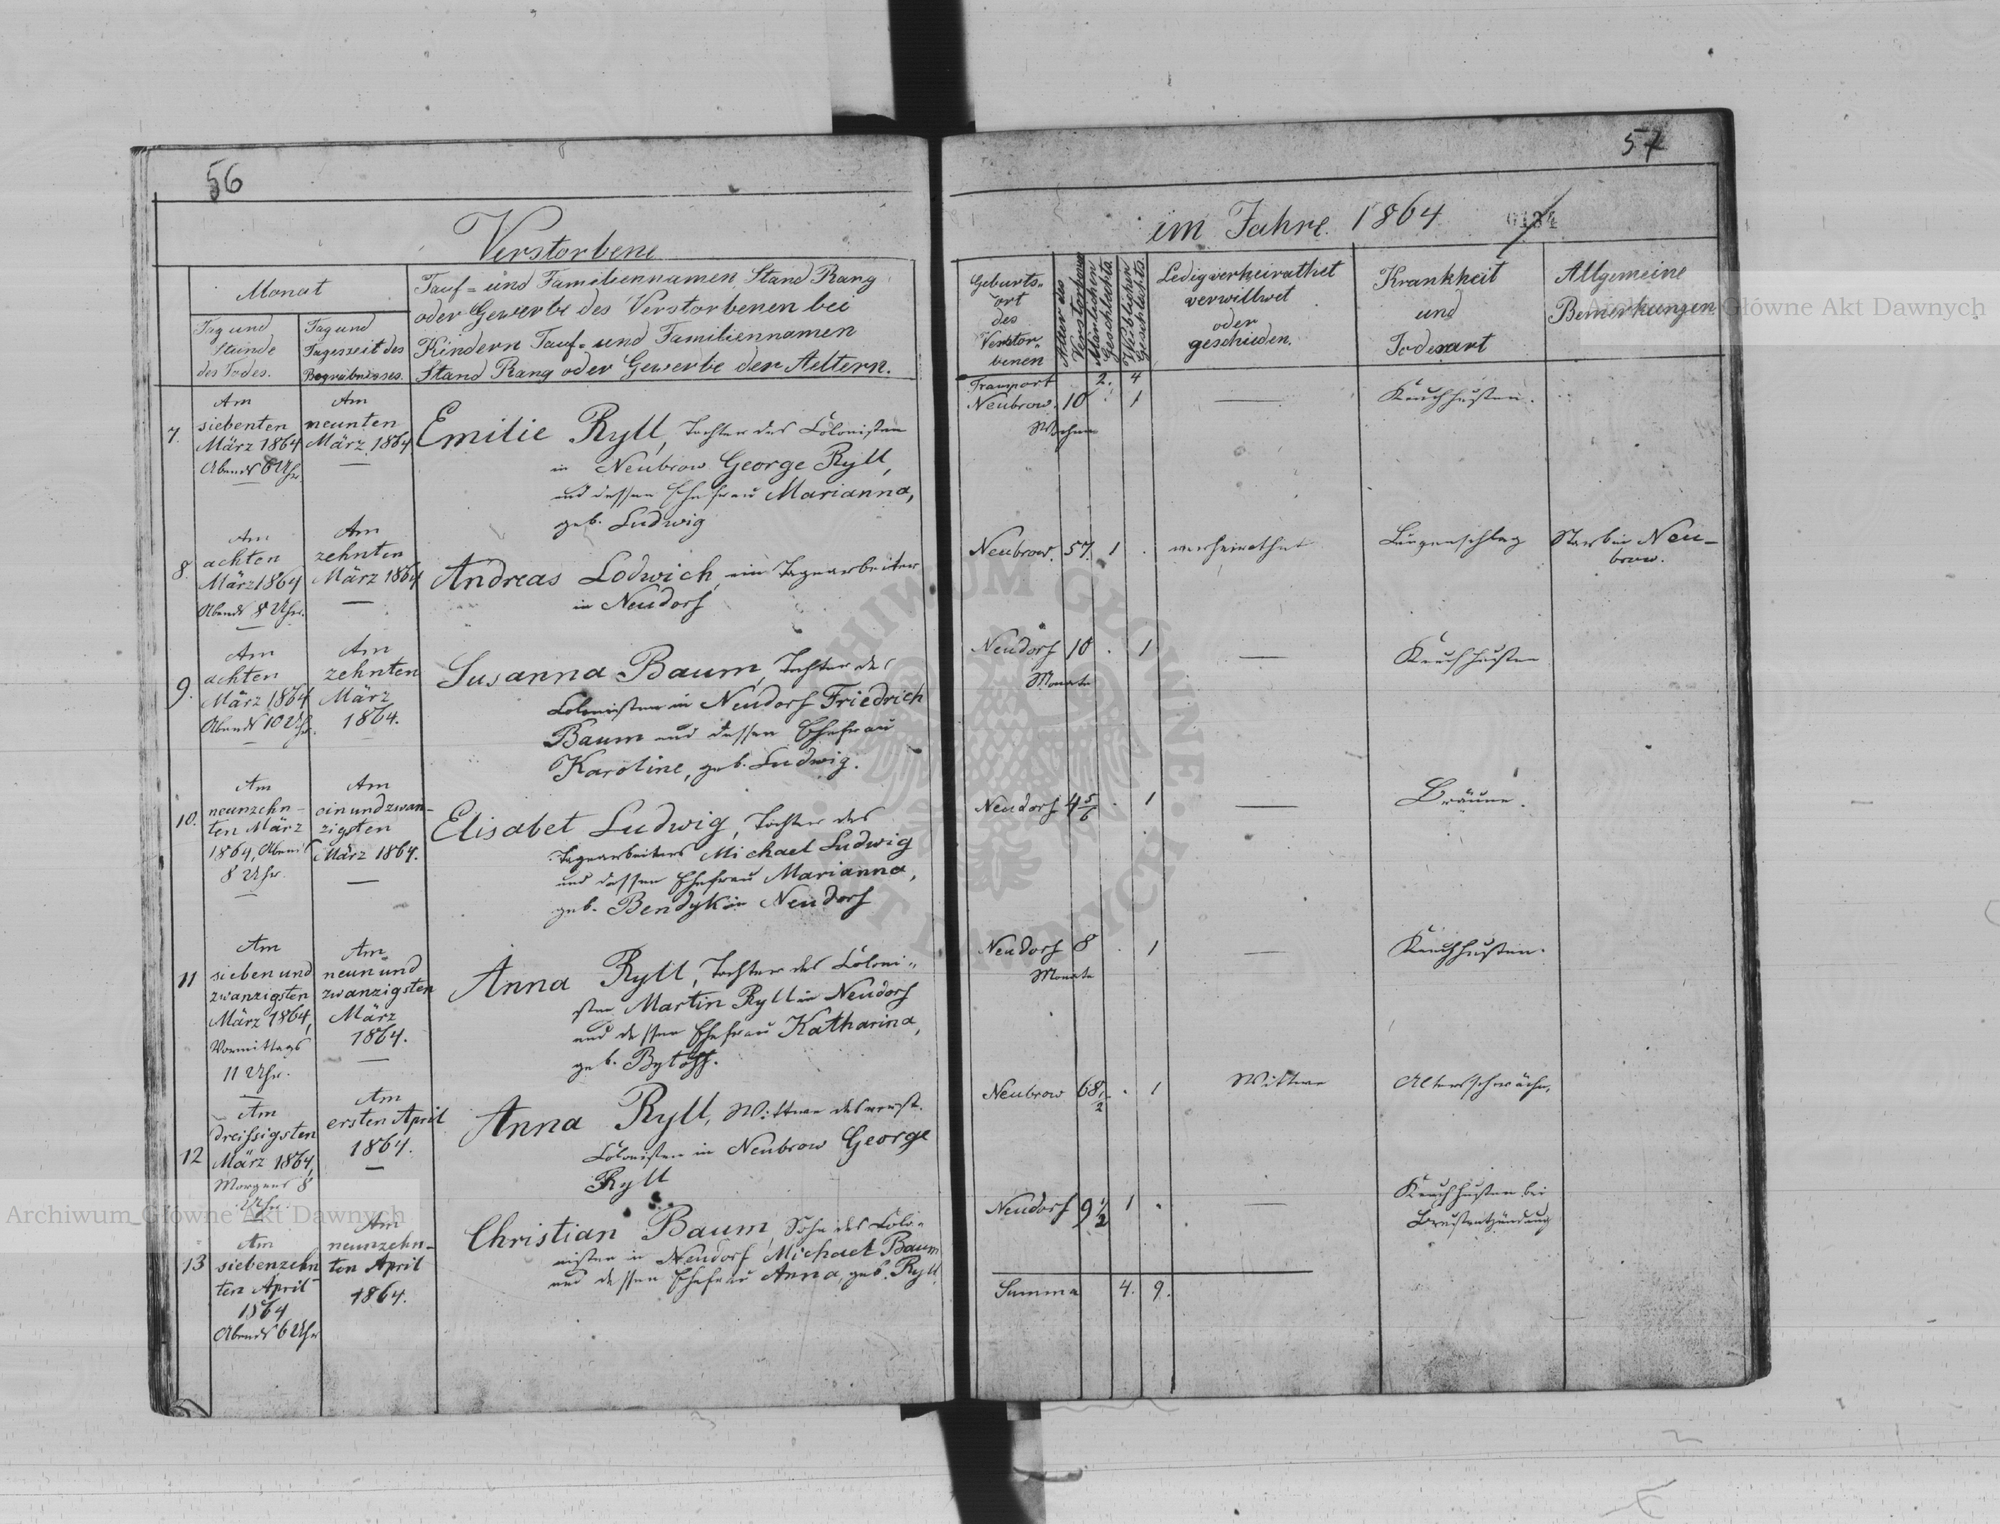 56
Verstorbene
Monat
Tag und
Stunde
des Todes.
Tag und
Tageszeit des
Begräbnisses.
Tauf- und Familiennamen, Stand Rang
oder Gewerbe des Verstorbenen bei
Kindern Tauf- und Familiennamen
Stand Rang oder Gewerbe der Aeltern.
7.
Am
siebenten
März 1864
Abends 6 Uhr
Am
neunten
März 1864
Emilie Ryll, Tochter des Colonisten
in Neubrow George Ryll,
und dessen Ehefrau Marianna,
geb. Ludwig
8.
Am
achten
März 1864
Abends 8 Uhr.
Am
zehnten
März 1864
Andreas Lodwich, ein Tagearbeiter
in Neudorf
9.
Am
achten
März 1864
Abends 10 Uhr.
Am
zehnten
März
1864.
Susanna Baum, Tochter des
Colonisten in Neudorf Friedrich
Baum und dessen Ehefrau
Karoline, geb. Ludwig.
10.
Am
neunzehn-
ten März
1864, Abends
8 Uhr.
Am
ein und zwan-
zigsten
März 1864.
Elisabet Ludwig, Tochter des
Tagearbeiters Michael Ludwig
und dessen Ehefrau Marianna,
geb. Bendyk in Neudorf
11
Am
sieben und
zwanzigsten
März 1864,
Vormittags
11 Uhr.
Am
neun und
zwanzigsten
März
1864.
Anna Ryll, Tochter des Coloni-
sten Martin Ryll in Neudorf
und dessen Ehefrau Katharina,
geb. Bytoff.
12
Am
dreissigsten
März 1864,
Morgens 8
Uhr.
Am
ersten April
1864.
Anna Ryll, Wittwe des verst.
Colonisten in Neubrow George
Ryll
13
Am
siebenzehn
ten April
1864
Abends 6 Uhr
Am
neunzehn-
ten April
1864.
Christian Baum, Sohn des Colo-
nisten in Neudorf Michael Baum
und dessen Ehefrau Anna, geb. Ryll.
57
im Jahre 1864
Geburts-
ort
des
Verstor-
benen
Alter des
Verstorbenen
Männlichen
Geschlechts
Weiblichen
Geschlechts.
Ledig verheirathet
verwittwet
oder
geschieden.
Krankheit
und
Todesart
Allgemeine
Bemerkungen
Transport 2. 4
Neubrow. 10 . 1 — Keuchhusten.
Wochen
Neubrow. 57. 1 . verheirathet Lungenschlag Starb in Neu-
brow.
Neudorf 10 . 1 — Keuchhusten
Monate
Neudorf 4 5/6 . 1 — Bräune.
Neudorf 8 . 1 — Keuchhusten.
Monate
Neubrow 68 1/2 . 1 Wittwe Altersschwäche.
Neudorf 9 1/2 1 . — Keuchhusten bei
Brustentzündung
Summa 4. 9.
Archiwum Główne Akt Dawnych
Archiwum Główne Akt Dawnych
ARCHIWUM GŁÓWNE AKT DAWNYCH